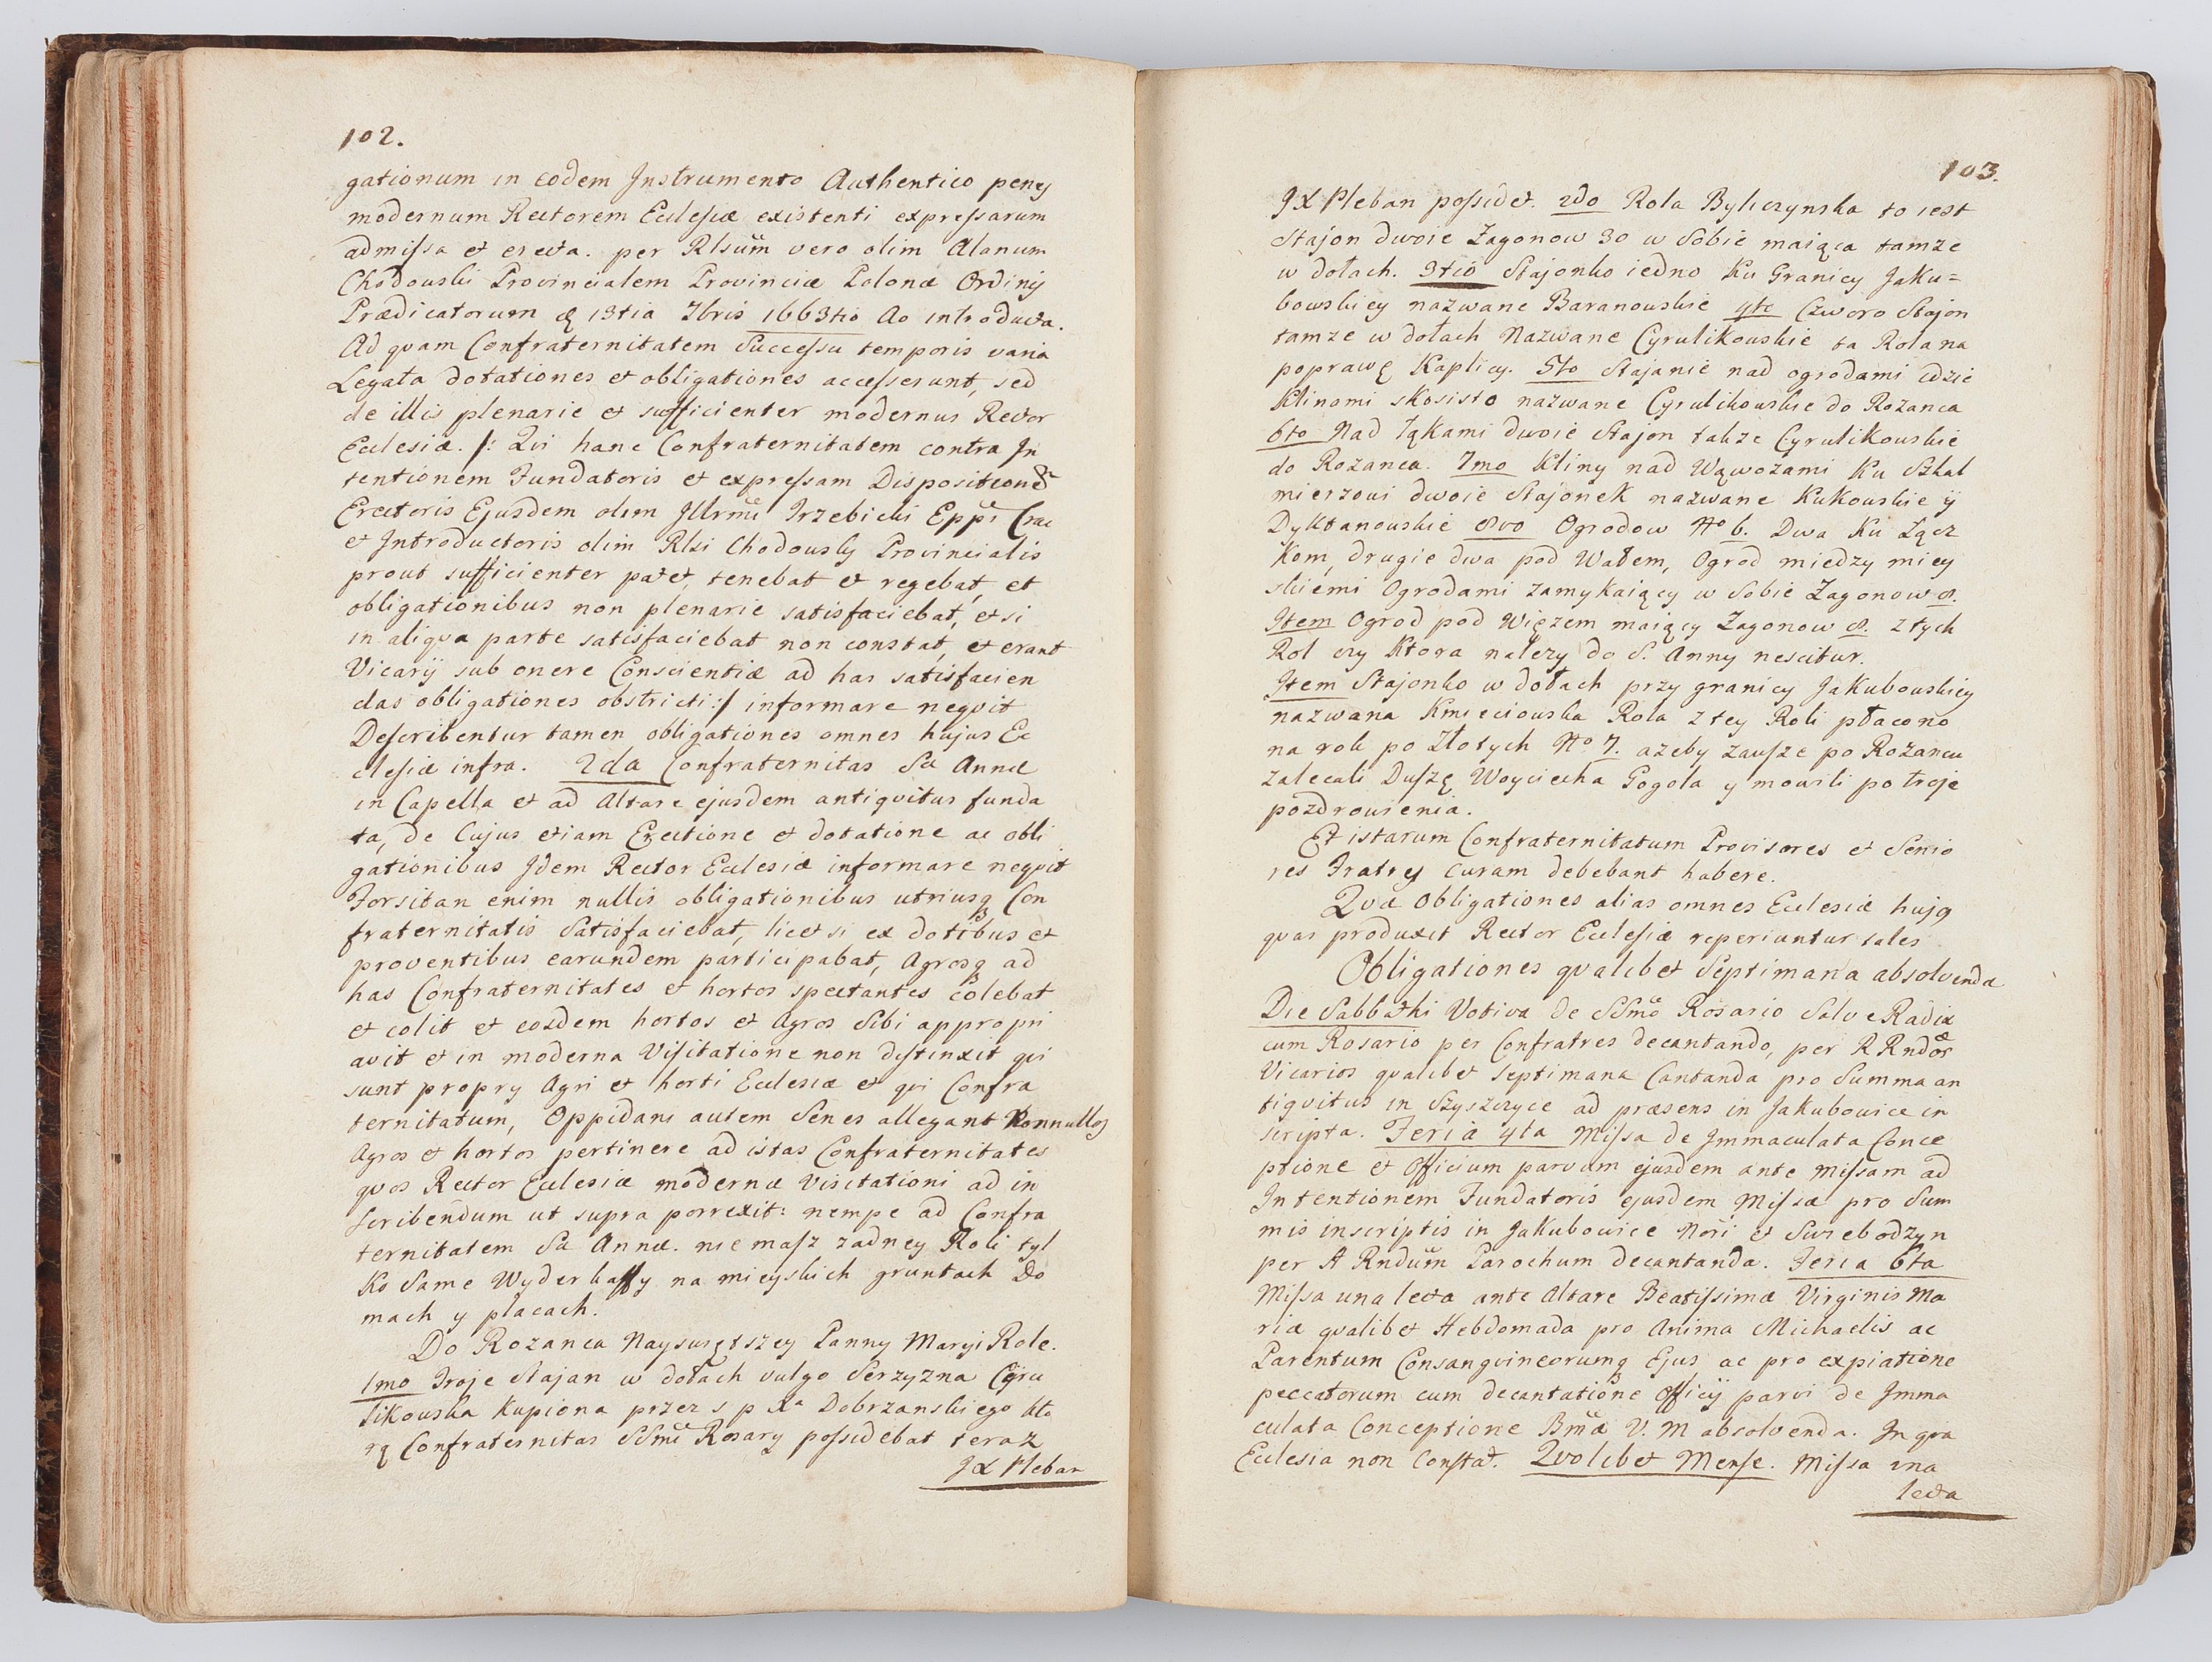 102.
gationum in eodem Instrumento Authentico penes
modernum Rectorem Ecclesiæ existenti expressarum
admissa et erecta. per Rlsum vero olim Alanum
Chodowski Provincialem Provinciæ Polonæ Ordinis
Prædicatorum 13tia 7bris 1663tio Ao introducta.
Ad qvam Confraternitatem Successu temporis varia
Legata dotationes et obligationes accesserunt, sed
de illis plenarie et sufficienter modernus Rector
Ecclesiæ. /: Qvi hanc Confraternitatem contra In
tentionem Fundatoris et expressam Dispositione
Erectoris Ejusdem olim Illrmi Trzebicki Eppi Crac
et Introductoris olim Rlsi Chodowsky Provincialis
prout sufficienter patet, tenebat et regebat, et
obligationibus non plenarie satisfaciebat, et si
in aliqva parte satisfaciebat non constat, et erant
Vicarij sub onere Conscientiæ ad has satisfacien
das obligationes obstricti :/ informare neqvit
Describentur tamen obligationes omnes hujus Ec
clesiæ infra. 2da Confraternitas Sæ Annæ
in Capella et ad Altare ejusdem antiqvitus funda
ta, de Cujus etiam Erectione et dotatione ac obli
gationibus Idem Rector Ecclesiæ informare neqvit
Forsitan enim nullis obligationibus utriusq Con
fraternitatis Satisfaciebat, licet si ex dotibus et
proventibus earundem participabat, Agrosq ad
has Confraternitates et hortos spectantes colebat
et colit et eosdem hortos et Agros Sibi appropri
avit et in moderna Visitatione non distinxit qvi
sunt propry Agri et horti Ecclesiæ et qvi Confra
ternitatum, Oppidani autem Senes allegant Nonnullos
Agros et hortos pertinere ad istas Confraternitates
qvos Rector Ecclesiæ modernæ Visitationi ad in
scribendum ut supra porrexit: nempe ad Confra
ternitatem Sæ Annæ. nie masz zadney Roli tyl
Ko Same Wyderkaffy na mieyskich gruntach Do
mach y placach.
Do Rozanca Nayswiętszey Panny Maryi Role.
1mo Troje Stajan w dołach vulgo Serzyzna Cyru
likowska Kupiona przez s p Xa Dobrzanskiego kto
rą Confraternitas SSmi Rosary possidebat teraz
JX Pleban
103.
JX Pleban possidet. 2do Rola Byliczynska to iest
Stajon dwoie Zagonow 30 w Sobie maiąca tamze
w dołach. 3tio Stajonko iedno Ku Granicy Jaku=
bowskiey nazwane Baranowskie 4to Czworo Stajon
tamze w dołach Nazwane Cyrulikowskie ta Rola na
poprawę Kaplicy. 5to Stajanie nad ogrodami idzie
Klinami skosisto nazwane Cyrulikowskie do Rozanca
6to Nad Łąkami dwoie Stajon takze Cyrulikowskie
do Rozanca. 7mo Kliny nad Wąwozami Ku Szkal
mierzowi dwoie Stajonek nazwane Kukowskie ÿ
Dyktanowskie 8vo Ogrodow No 6. Dwa Ku Łącz
Kom, drugie dwa pod Wałem, Ogrod miedzy miey
skiemi Ogrodami zamykaiący w Sobie Zagonow 8.
Item Ogrod pod Więzem maiący Zagonow 8. z tych
Rol czy Ktora nalezy do S. Anny nescitur.
Item Stajonko w dołach przy granicy Jakubowskiey
nazwana Kmieciowska Rola z tey Roli płacono
na rok po Złotych No 7. azeby zausze po Rozancu
zalecali Duszę Woyciecha Gogola y mowili po troje
pozdrowienia.
Et istarum Confraternitatum Provisores et Senio
res Fratres curam debebant habere.
Qvæ Obligationes alias omnes Ecclesiæ hujq
qvas produxit Rector Ecclesiæ reperiuntur tales
Obligationes qvalibet Septimana absolvenda
Die Sabbathi Votiva de SSmo Rosario Salve Radix
cum Rosario per Confratres decantando, per RRndos
Vicarios qvalibet septimana Cantanda pro Summa an
tiqvitus in Szyszczyce ad præsens in Jakubowice in
scripta. Feria 4ta Missa de Immaculata Conce
ptione et Officium parvum ejusdem ante Missam ad
Intentionem Fundatoris ejusdem Missæ pro Sum
mis inscriptis in Jakubowice Nori et Swiebodzyn
per A Rndum Parochum decantanda. Feria 6ta
Missa una lecta ante Altare Beatissimæ Virginis Ma
riæ qvalibet Hebdomada pro Anima Michaelis ac
Parentum Consangvineorumq Ejus ac pro expiatione
peccatorum cum decantatione Officij parvi de Imma
culata Conceptione Bmæ V. M absolvenda. In qva
Ecclesia non Constat. Qvolibet Mense. Missa una
lecta